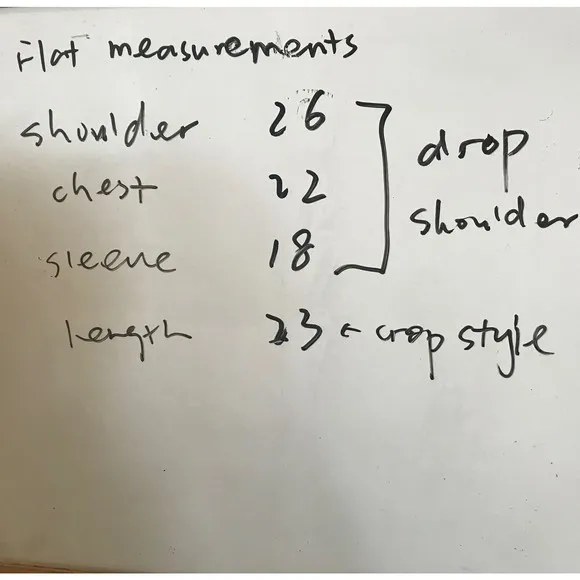 Flat measurements
shoulder 26
chest 22
drop shoulder
sleeve 18
length 23 ← crop style